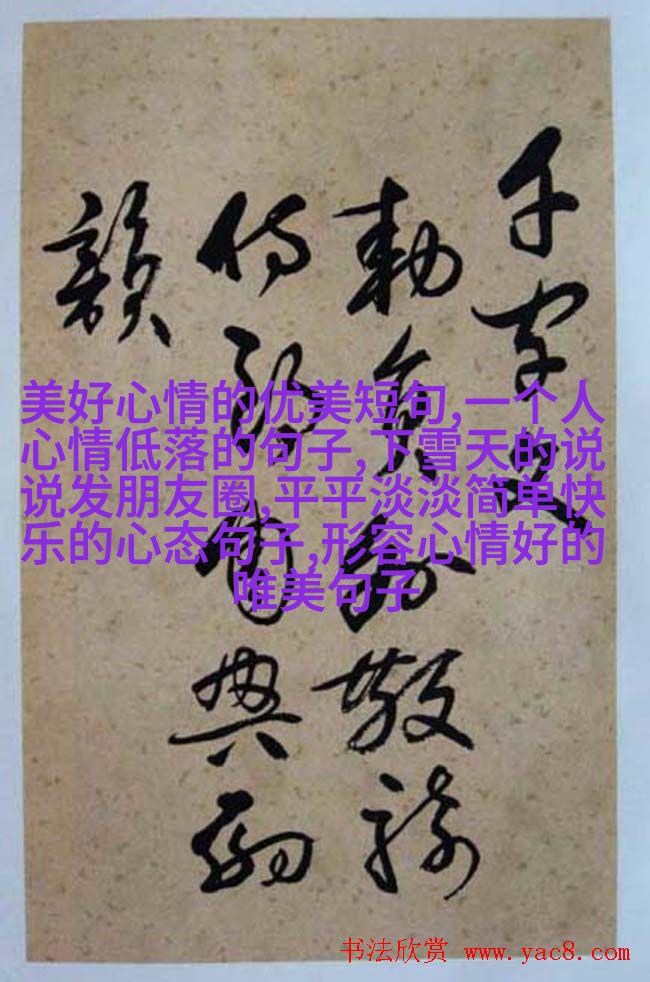 千字文
勅員外散騎
侍郎周興嗣
韻
美好心情的优美短句,一个人
心情低落的句子,下雪天的说
说发朋友圈,平平淡淡简单快
乐的心态句子,形容心情好的
唯美句子
书法欣赏 www.yac8.com